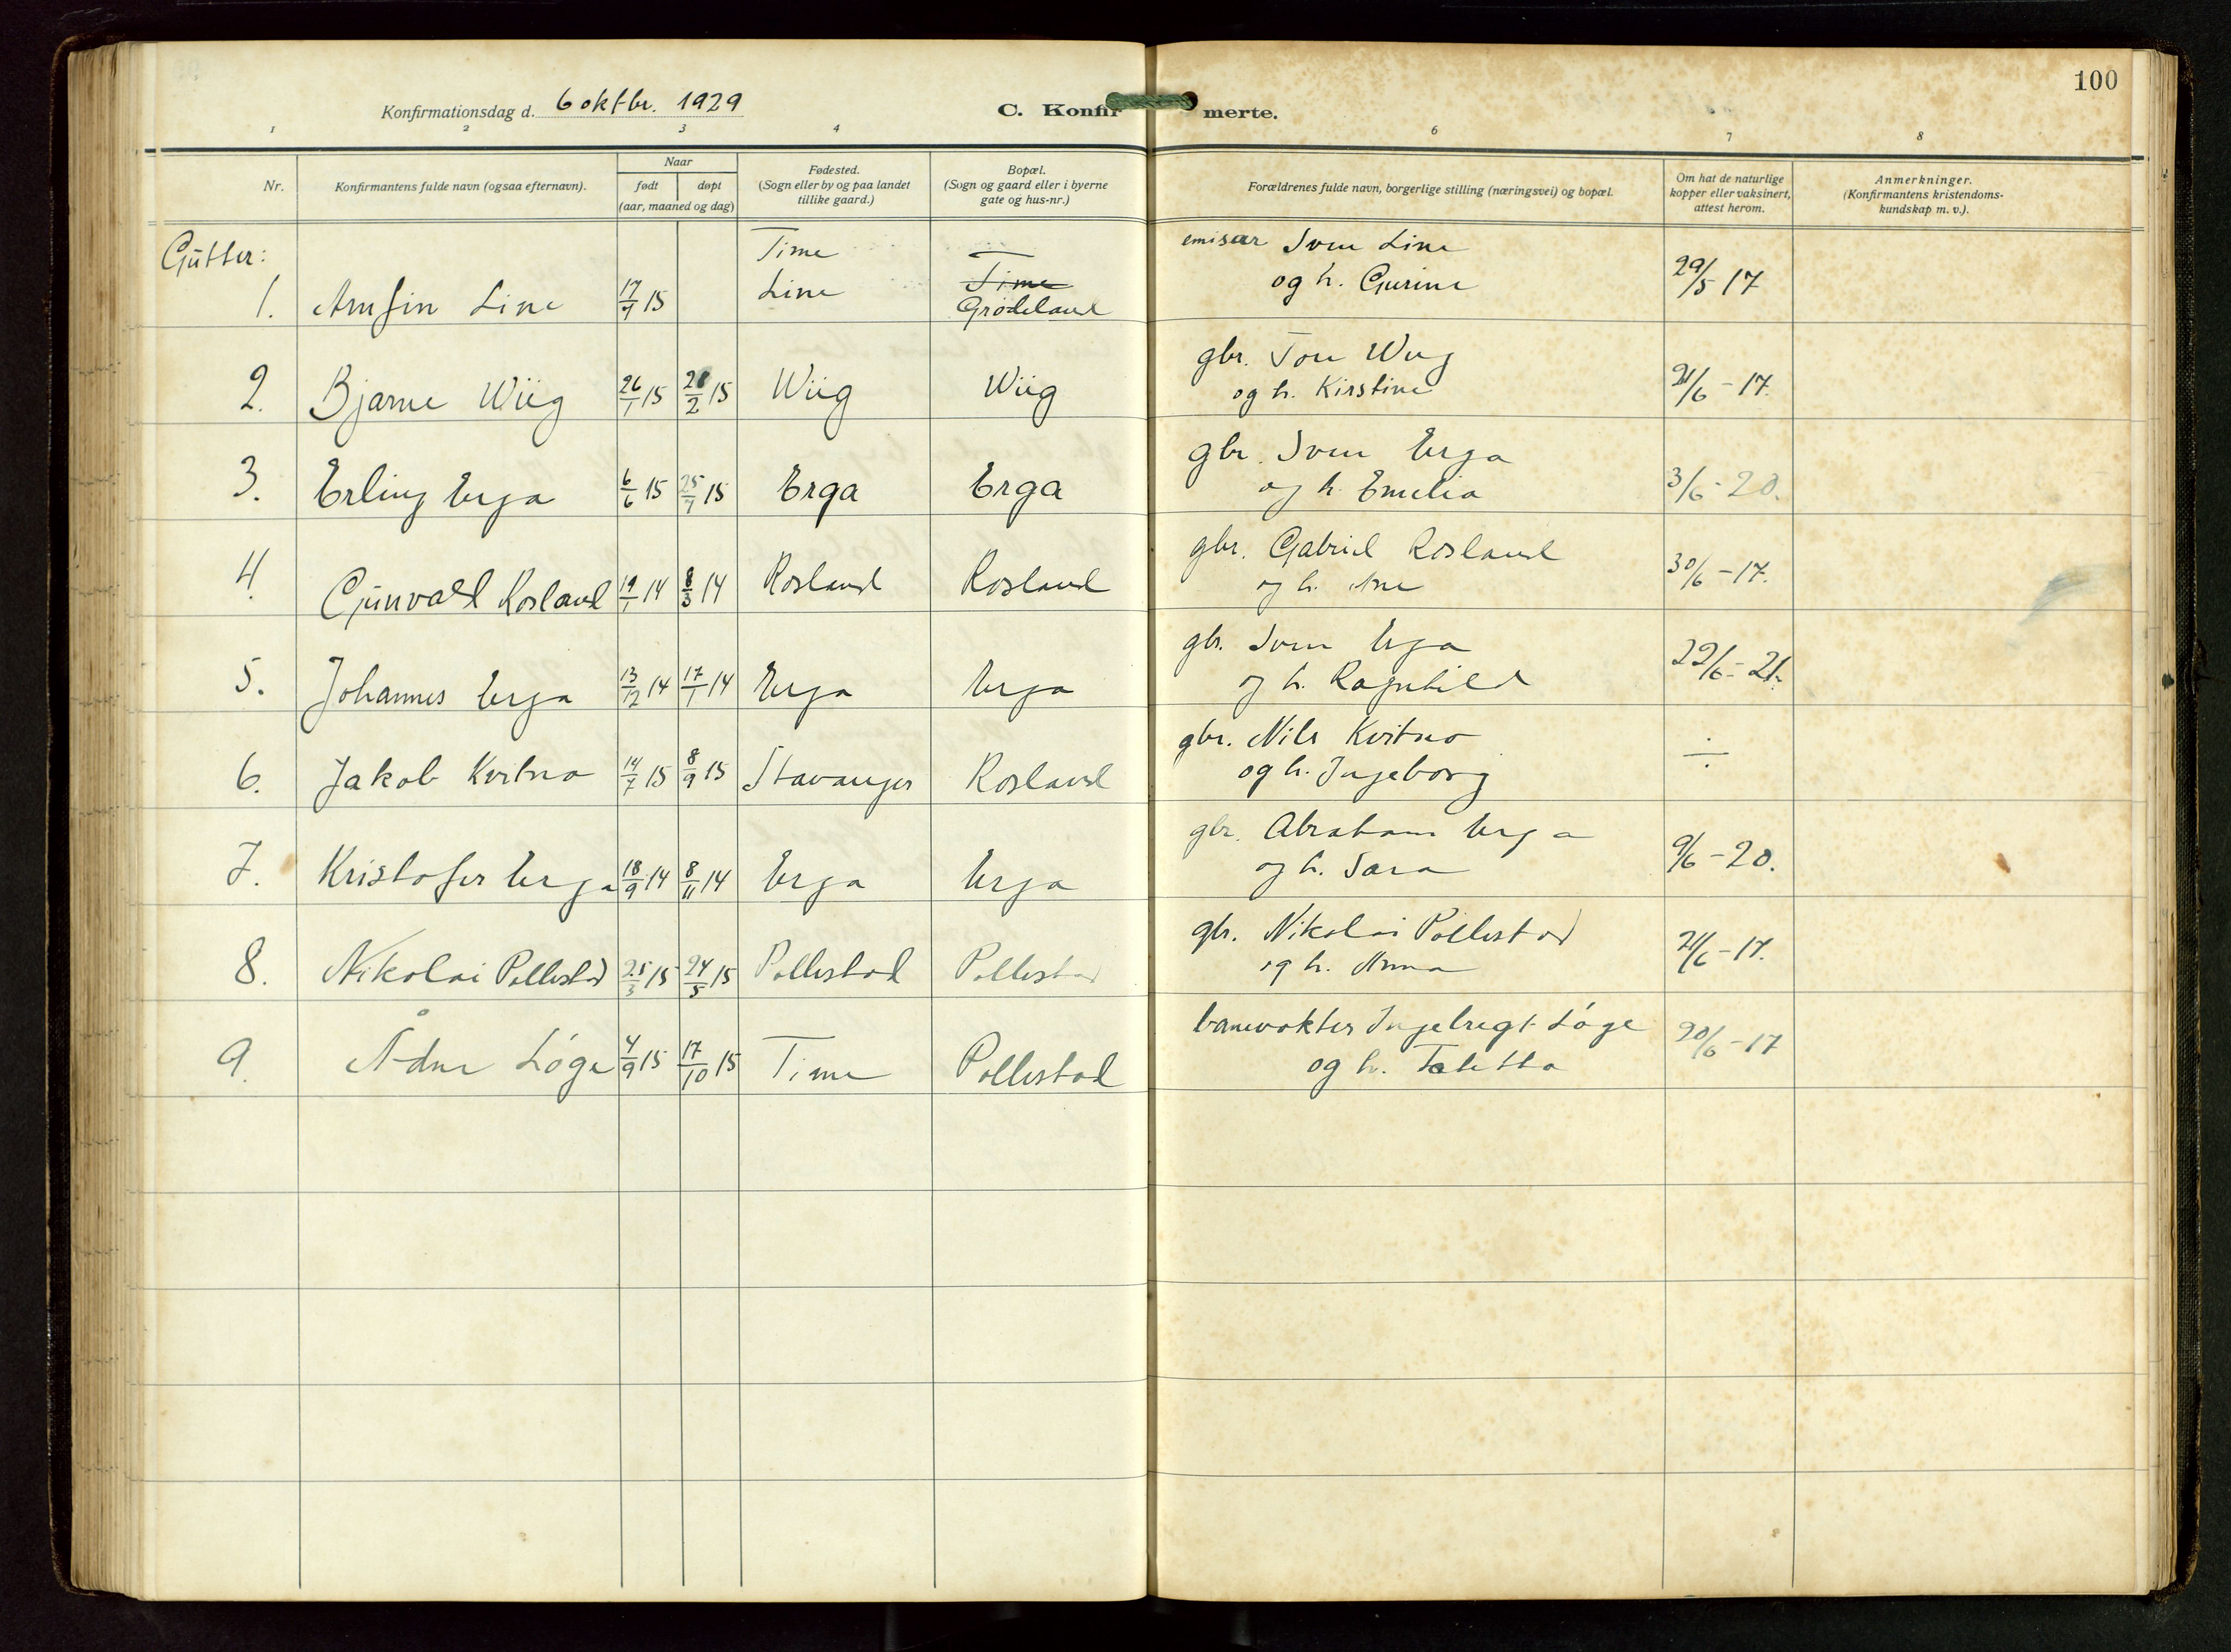 100
Konfirmationsdag d. 6 oktbr. 1929
C. Konfirmerte.
1 2 3 4 6 7 8
Nr.
Konfirmantens fulde navn (ogsaa efternavn).
Naar
født
døpt
(aar, maaned og dag)
Fødested.
(Sogn eller by og paa landet
tillike gaard.)
Bopæl.
(Sogn og gaard eller i byerne
gate og hus-nr.)
Forældrenes fulde navn, borgerlige stilling (næringsvei) og bopæl.
Om hat de naturlige
kopper eller vaksinert,
attest herom.
Anmerkninger.
(Konfirmantens kristendoms-
kundskap m. v.).
Gutter:
1. Arnfin Line 15 Time Line Time Grødeland
emisær Sven Line
og h. Gurine
29/5 17
2. Bjarne Wiig 26/1 15 2/2 15 Wiig Wiig
gbr. Tore Wiig
og h. Kirstine
21/6 - 17.
3. Erling Erga 6/6 15 25/7 15 Erga Erga
gbr. Sven Erga
og h. Emelia
3/6 - 20.
4. Gunvald Rosland 19/1 14 8/3 14 Rosland Rosland
gbr. Gabriel Rosland
og h. Ane
30/6 - 17.
5. Johannes Erga 13/12 14 17/1 14 Erga Erga
gbr. Sven Erga
og h. Ragnhild
22/6 - 21.
6. Jakob Kvitno 14/7 15 8/9 15 Stavanger Rosland
gbr. Nils Kvitno
og h. Ingeborg
÷
7. Kristofer Erga 18/9 14 8/11 14 Erga Erga
gbr. Abraham Erga
og h. Sara
9/6 - 20.
8. Nikolai Pollestad 25/3 15 24/5 15 Pollestad Pollestad
gbr. Nikolai Pollestad
og h. Anna
21/6 - 17.
9. Ådne Løge 4/9 15 17/10 15 Time Pollestad
banevokter Ingebregt Løge
og h. Taletta
20/6 - 17